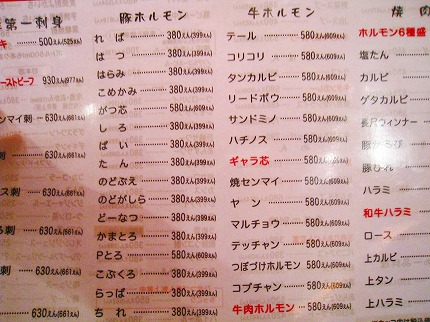 第一刺身
キ 500えん(525えん)
ーストビーフ 930えん(977えん)
ンマイ刺 630えん(661えん)
刺 630えん(661えん)
ス刺 630えん(661えん)
刺 630えん(661えん)
刺 630えん(661えん)
豚ホルモン
れば 380えん(399えん)
はつ 380えん(399えん)
はらみ 380えん(399えん)
こめかみ 380えん(399えん)
がつ芯 580えん(609えん)
しろ 380えん(399えん)
ぱい 380えん(399えん)
たん 380えん(399えん)
のどぶえ 380えん(399えん)
のどがしら 380えん(399えん)
どーなつ 380えん(399えん)
かまとろ 380えん(399えん)
Pとろ 580えん(609えん)
こぶくろ 380えん(399えん)
らっぱ 380えん(399えん)
ちれ 380えん(399えん)
牛ホルモン
テール 580えん(609えん)
コリコリ 580えん(609えん)
タンカルビ 580えん(609えん)
リードボウ 580えん(609えん)
サンドミノ 580えん(609えん)
ハチノス 580えん(609えん)
ギャラ芯 580えん(609えん)
焼センマイ 580えん(609えん)
ヤン 580えん(609えん)
マルチョウ 580えん(609えん)
テッチャン 580えん(609えん)
つぼづけホルモン 580えん(609えん)
コプチャン 580えん(609えん)
牛肉ホルモン 580えん(609えん)
焼肉
ホルモン6種盛
塩たん
カルビ
ゲタカルビ
長尺ウィンナー
豚かるび
豚ひれ
ハラミ
和牛ハラミ
ロース
上カルビ
上タン
上ハラミ